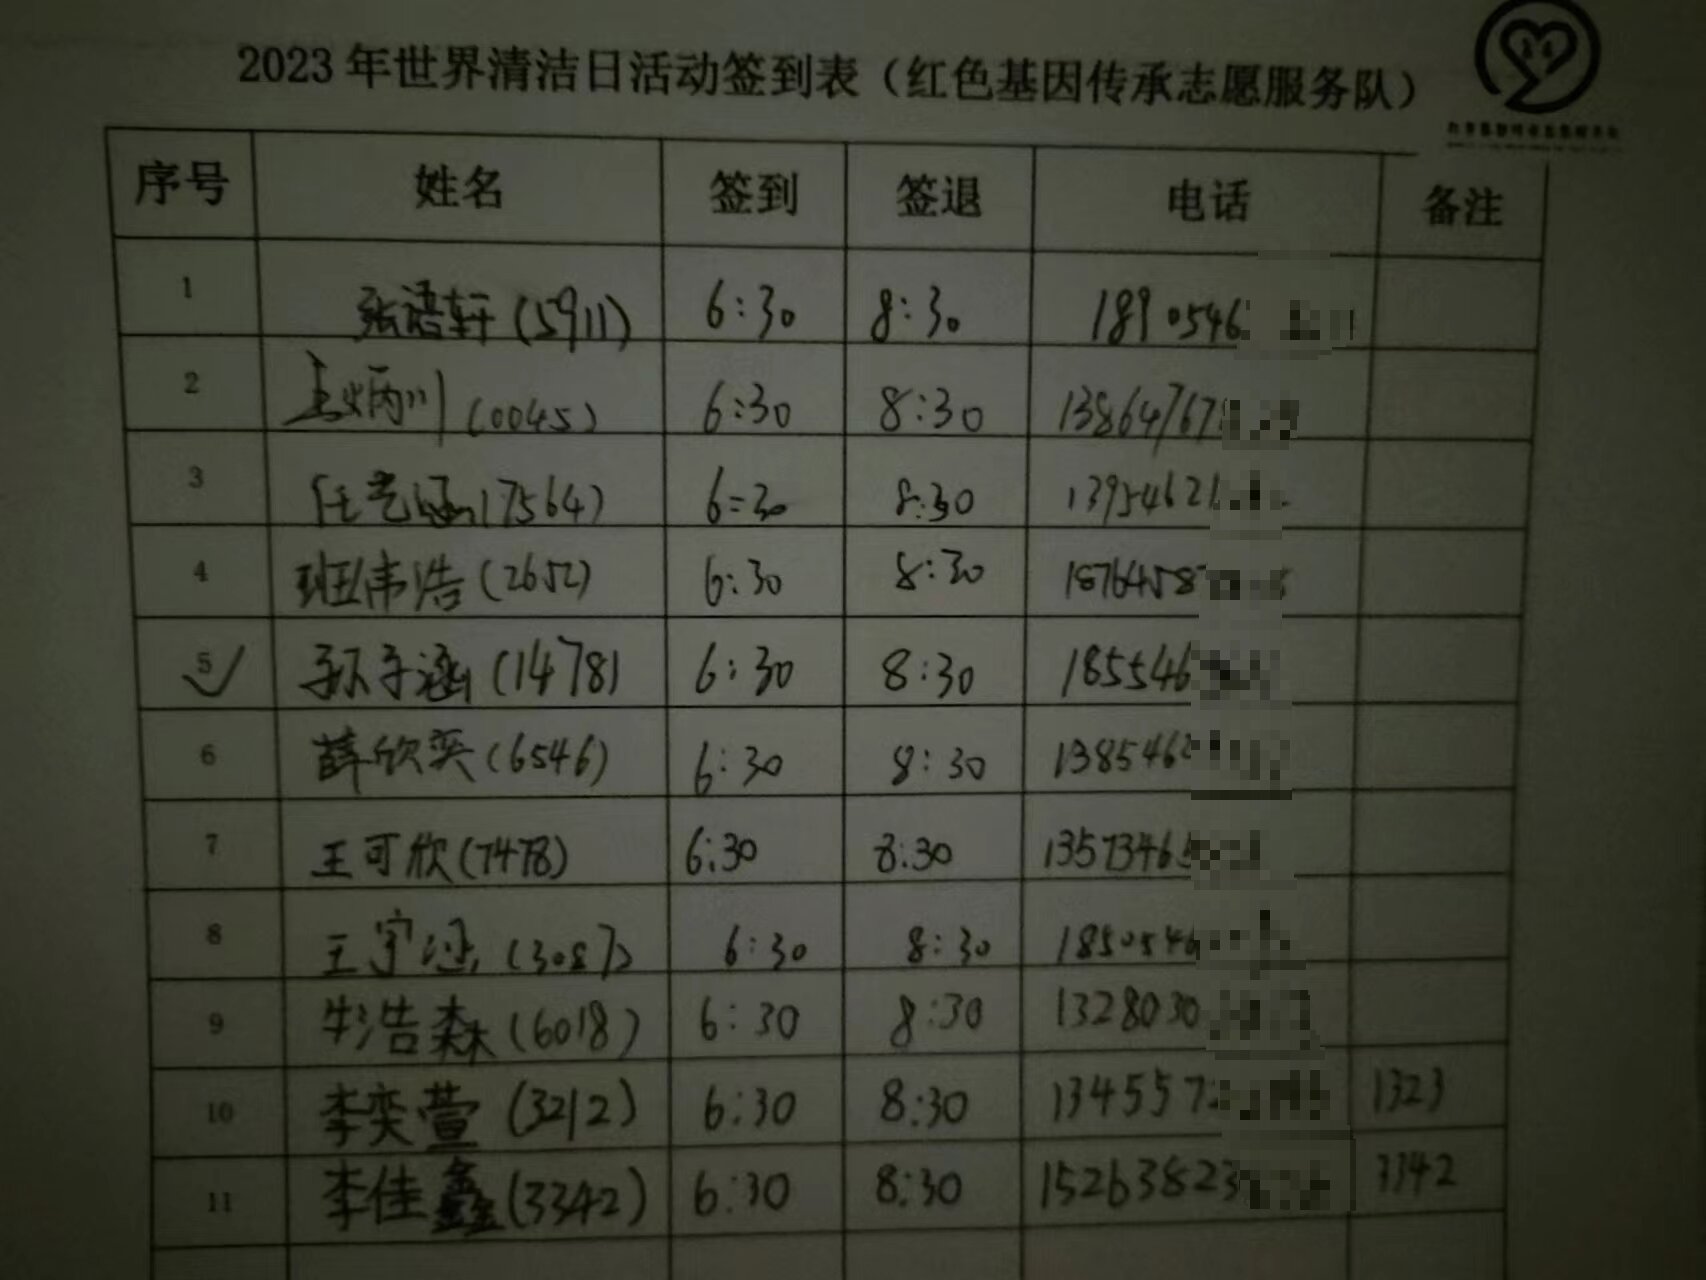 2023年世界清洁日活动签到表（红色基因传承志愿服务队）
序号 姓名 签到 签退 电话 备注
1 张语轩(5911) 6:30 8:30 1890546
2 孟炳川(0045) 6:30 8:30 13864767
3 任艺涵(7564) 6:30 8:30 13954621
4 班伟浩(2652) 6:30 8:30 1876458
5 孙子涵(1478) 6:30 8:30 185546
6 薛欣奕(6546) 6:30 8:30 1385462
7 王可欣(7478) 6:30 8:30 13573465
8 王宇涵(3087) 6:30 8:30 1850546
9 牛浩森(6018) 6:30 8:30 1328030
10 李奕萱(3212) 6:30 8:30 1345572 1323
11 李佳鑫(3342) 6:30 8:30 15263823 3342